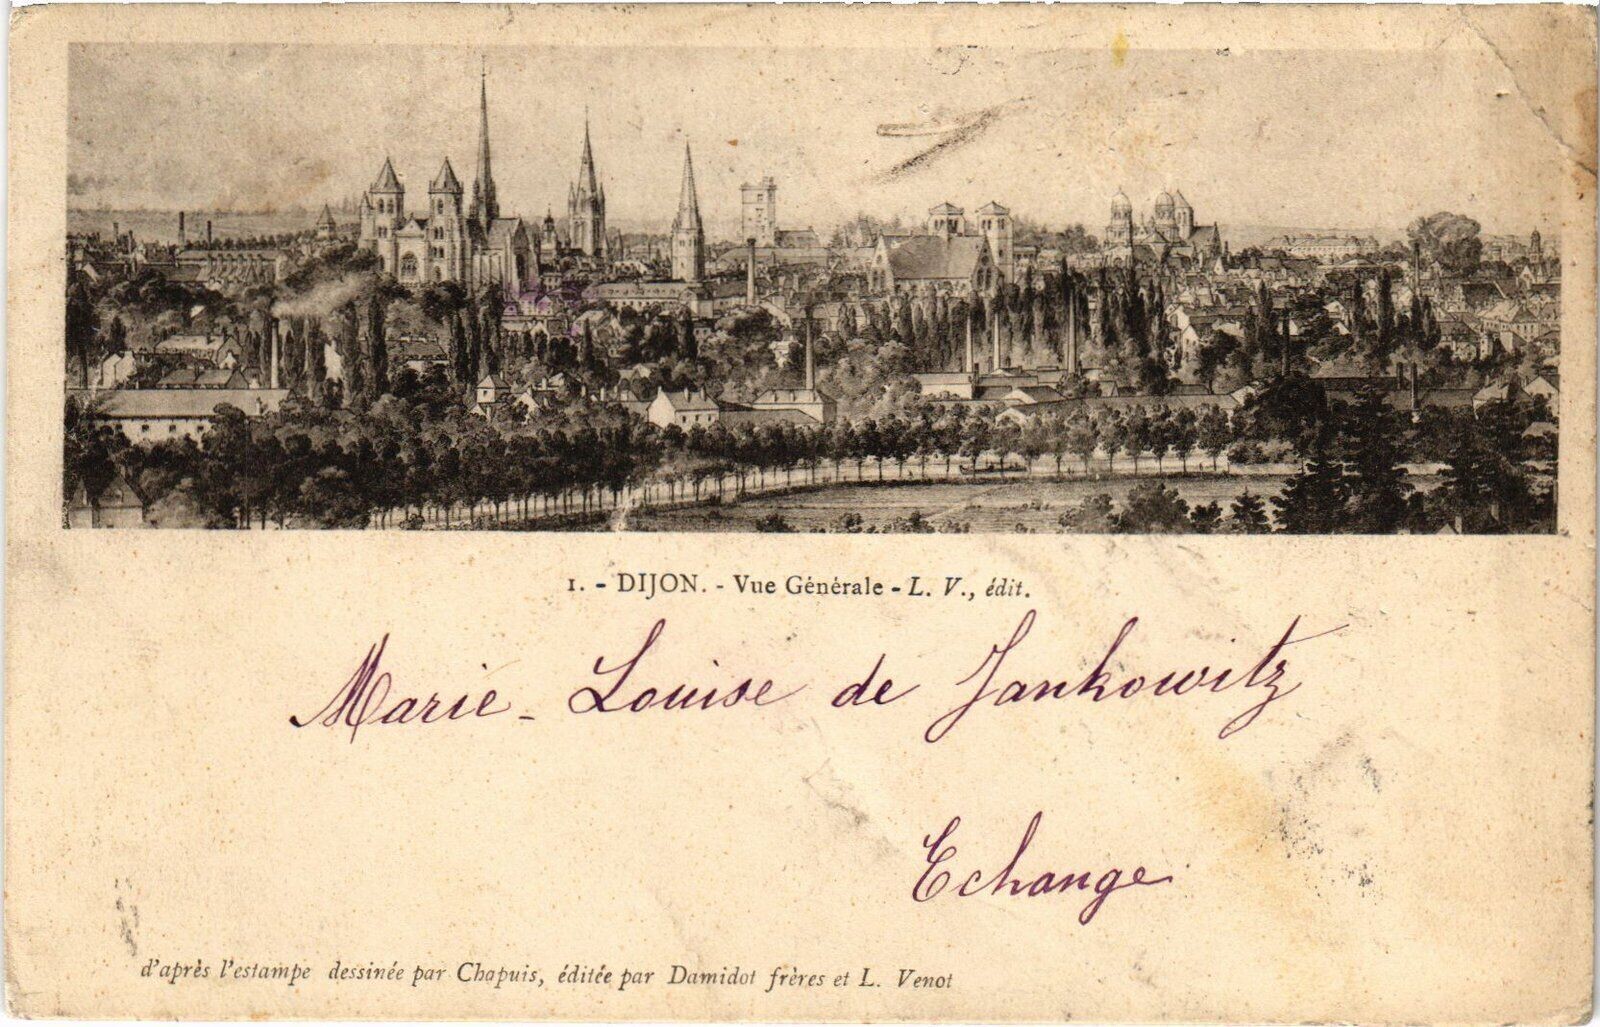 1. - DIJON. - Vue Générale - L. V., édit.
Marie-Louise de Jankowitz
Echange
d'après l'estampe dessinée par Chapuis, éditée par Damidot frères et L. Venot